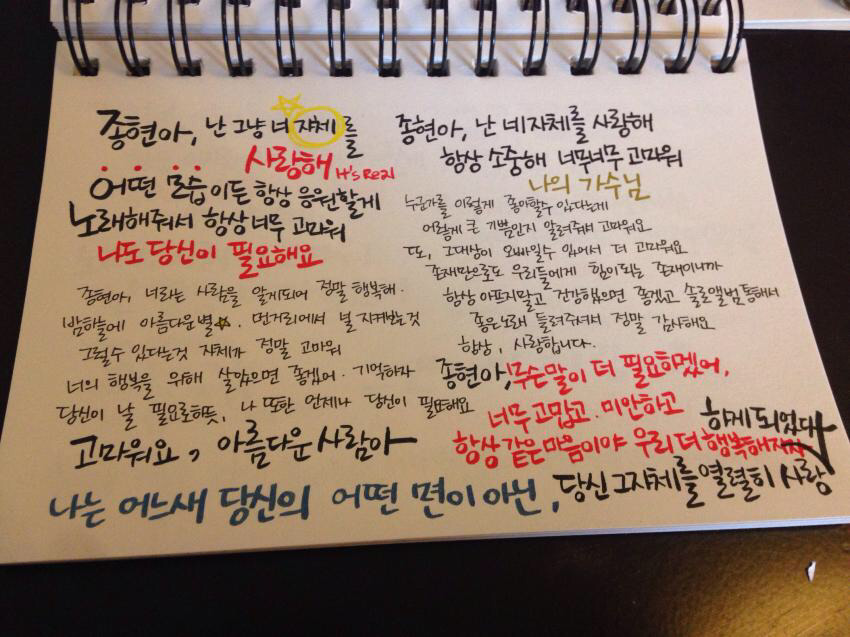 종현아, 난 그냥 너 자체를
사랑해 It's Real
어떤 모습이든 항상 응원할게
노래해줘서 항상 너무 고마워
나도 당신이 필요해요
종현아, 너라는 사람을 알게되어 정말 행복해.
밤하늘에 아름다운 별. 먼거리에서 널 지켜보는것
그럴수 있다는것 자체가 정말 고마워
너의 행복을 위해 살았으면 좋겠어. 기억하자
당신이 날 필요로하듯, 나 또한 언제나 당신이 필요해요
고마워요, 아름다운 사람아
종현아, 난 네 자체를 사랑해
항상 소중해 너무너무 고마워
나의 가수님
누군가를 이렇게 좋아할수 있다는게
어떻게 큰 기쁨인지 알려줘서 고마워요
또, 그대상이 오빠일수 있어서 더 고마워요
존재만으로도 우리들에게 힘이되는 존재이니까
항상 아프지말고 건강했으면 좋겠고 솔로앨범 통해서
좋은노래 들려주셔서 정말 감사해요
항상, 사랑합니다.
종현아, 무슨말이 더 필요하겠어,
너무 고맙고. 미안하고
항상 같은 마음이야 우리 더 행복해지자
나는 어느새 당신의 어떤 면이 아닌, 당신 그자체를 열렬히 사랑
하게 되었다